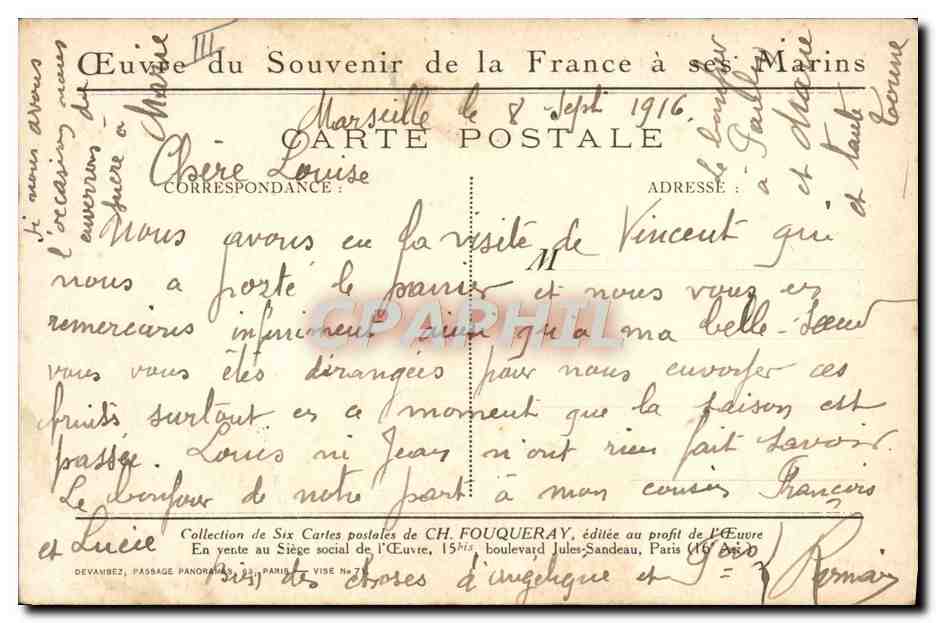 III
Œuvre du Souvenir de la France à ses Marins
Marseille le 8 Sept 1916.
CARTE POSTALE
Chère Louise
CORRESPONDANCE :
ADRESSE :
Nous avons eu la visite de Vincent qui
M
nous a porté le panier et nous vous en
remercions infiniment ainsi qu'a ma belle-sœur
vous vous êtes dérangées pour nous envoyer ces
fruits surtout en ce moment que la saison est
passée. Louis ni Jean n'ont rien fait savoir.
Le bonjour de notre part à mon cousin François
et Lucie
Collection de Six Cartes postales de CH. FOUQUERAY, éditée au profit de l'Œuvre
En vente au Siège social de l'Œuvre, 15bis, boulevard Jules-Sandeau, Paris (16e Arr.)
DEVAMBEZ, PASSAGE PANORAMAS, 63, PARIS — VISÉ No
Bien des choses d'Angélique et
Romain
si nous avons
l'occasion nous
enverrons du
sucre à
Marie
le bonjour
à Paulin
et Marie
et tante
CPAPHIL